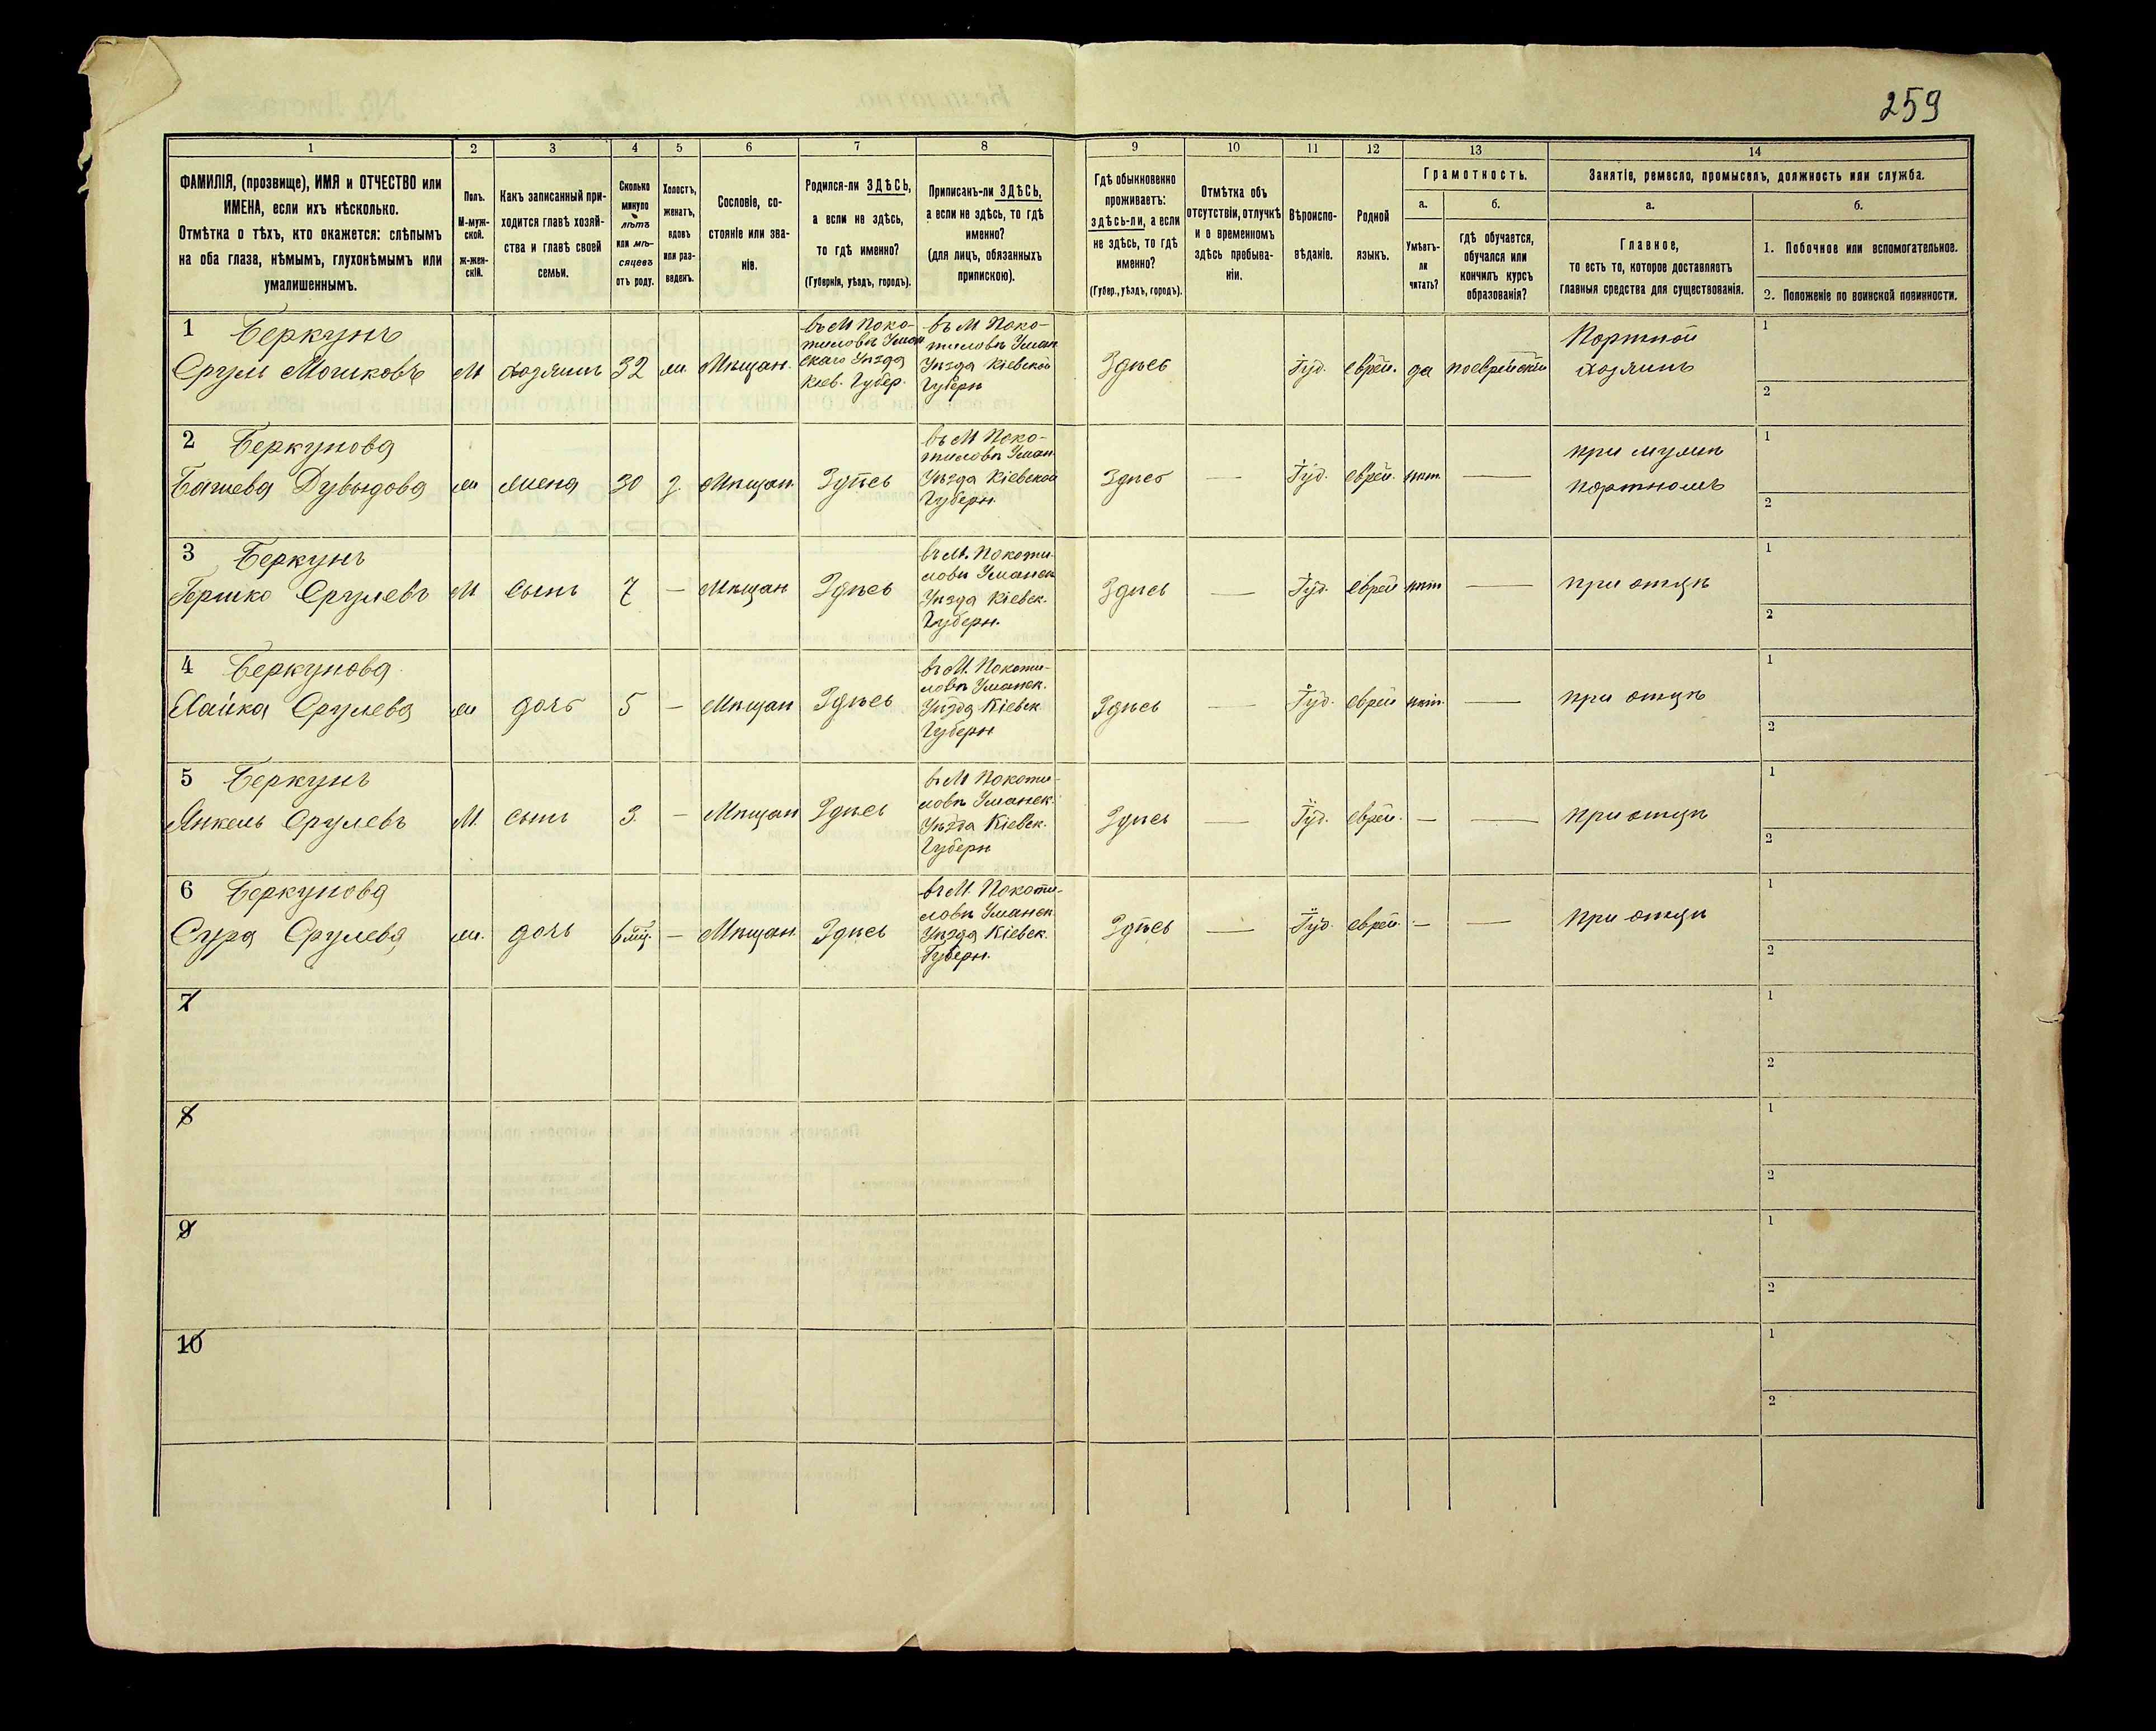 259
1 2 3 4 5 6 7 8 9 10 11 12 13 14
ФАМИЛІЯ, (прозвище), ИМЯ и ОТЧЕСТВО или
ИМЕНА, если ихъ нѣсколько.
Отмѣтка о тѣхъ, кто окажется: слѣпымъ
на оба глаза, нѣмымъ, глухонѣмымъ или
умалишеннымъ.
Полъ.
М-муж-
ской.
ж-жен-
скій.
Какъ записанный при-
ходится главѣ хозяй-
ства и главѣ своей
семьи.
Сколько
минуло
лѣтъ
или мѣ-
сяцевъ
отъ роду.
Холостъ,
женатъ,
вдовъ
или раз-
веденъ.
Сословіе, со-
стояніе или зва-
ніе.
Родился-ли ЗДѢСЬ,
а если не здѣсь,
то гдѣ именно?
(Губернія, уѣздъ, городъ).
Приписанъ-ли ЗДѢСЬ,
а если не здѣсь, то гдѣ
именно?
(для лицъ, обязанныхъ
припискою).
Гдѣ обыкновенно
проживаетъ:
здѣсь-ли, а если
не здѣсь, то гдѣ
именно?
(Губер., уѣздъ, городъ).
Отмѣтка объ
отсутствіи, отлучкѣ
и о временномъ
здѣсь пребыва-
ніи.
Вѣроиспо-
вѣданіе.
Родной
языкъ.
Грамотность.
а.
Умѣетъ-
ли
читать?
б.
гдѣ обучается,
обучался или
кончилъ курсъ
образованія?
Занятіе, ремесло, промыселъ, должность или служба.
а.
Главное,
то есть то, которое доставляетъ
главныя средства для существованія.
б.
1. Побочное или вспомогательное.
2. Положеніе по воинской повинности.
1 Беркунъ
Срулъ Мошковъ
М
хозяинъ
32
ж.
Мѣщан.
въ М Поко-
тиловѣ Уман
скаго Уѣзда
Кіев. Губер.
въ М Поко-
тиловѣ Уман
Уѣзда Кіевской
Губерн
Здѣсь
Іуд.
еврей.
да
поеврейски
Портной
хозяинъ
1
2
2 Беркунова
Башева Дувыдова
ж
жена
30
з.
Мѣщан.
Здѣсь
въ М Поко-
тиловѣ Уман
Уѣзда Кіевской
Губерн
Здѣсь
—
Іуд.
еврей.
нѣт.
—
при мужѣ
портномъ
1
2
3 Беркунъ
Гершко Срулевъ
М
сынъ
7
—
Мѣщан
Здѣсь
въ М. Покоти-
ловѣ Уманск
Уѣзда Кіевск.
Губерн.
Здѣсь
—
Іуд.
еврей
нѣт
—
при отцѣ
1
2
4 Беркунова
Хайка Срулева
ж
дочь
5
—
Мѣщан
Здѣсь
въ М. Покоти-
ловѣ Уманск.
Уѣзда Кіевск
Губерн
Здѣсь
—
Іуд.
еврей
нѣт.
—
при отцѣ
1
2
5 Беркунъ
Янкель Срулевъ
М.
сынъ
3.
—
Мѣщан
Здѣсь
въ М Покоти-
ловѣ Уманск.
Уѣзда Кіевск.
Губерн
Здѣсь
—
Іуд.
еврей.
—
—
при отцѣ
1
2
6 Беркунова
Сура Срулева
ж.
дочь
6 мц.
—
Мѣщан.
Здѣсь
въ М. Покоти-
ловѣ Уманск
Уѣзда Кіевск.
Губерн.
Здѣсь
—
Іуд.
еврей.
—
—
при отцѣ
1
2
7
1
2
8
1
2
9
1
2
10
1
2